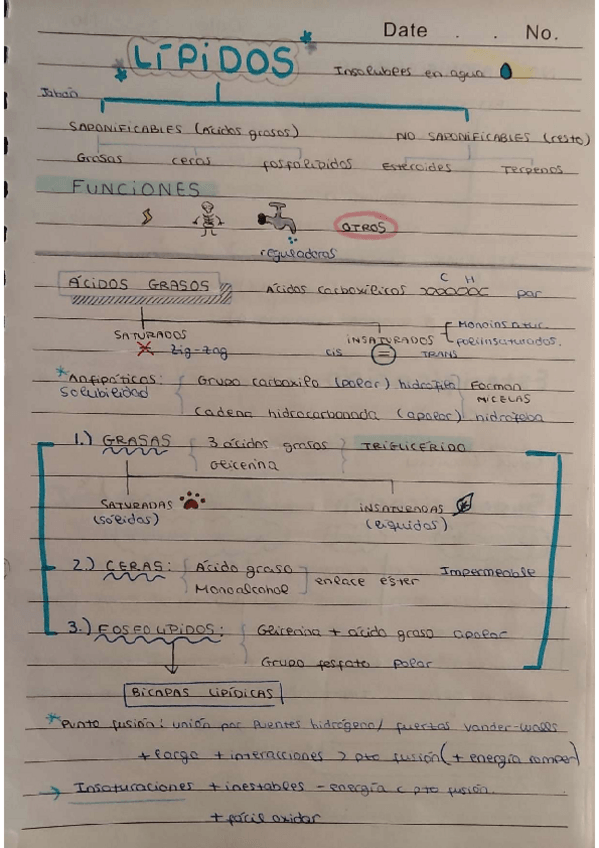 Date . . No.
LÍPIDOS
Insolubles en agua
Jabón
SAPONIFICABLES (Ácidos grasos) NO SAPONIFICABLES (resto)
Grasas ceras fosfolípidos Esteroides Terpenos
FUNCIONES
OTROS
reguladoras
ÁCIDOS GRASOS Ácidos carboxílicos C H par
SATURADOS INSATURADOS Monoinsatur.
poliinsaturados.
Zig-zag cis = TRANS
*Anfipáticos: Grupo carboxilo (polar) hidrófila Forman
solubilidad MICELAS
Cadena hidrocarbonada (apolar) hidrófoba
1.) GRASAS 3 ácidos grasos TRIGLICÉRIDO
Glicerina
SATURADAS INSATURADAS
(sólidas) (líquidas)
2.) CERAS: Ácido graso Impermeable
Monoalcohol enlace éster
3.) FOSFOLÍPIDOS: Glicerina + ácido graso apolar
Grupo fosfato polar
BICAPAS LIPÍDICAS
*Punto fusión: unión por puentes hidrógeno/ fuerzas vander-walls
+ larga + interacciones > pto fusión (+ energía romper)
→ Insaturaciones + inestables - energía < pto fusión.
+ fácil oxidar